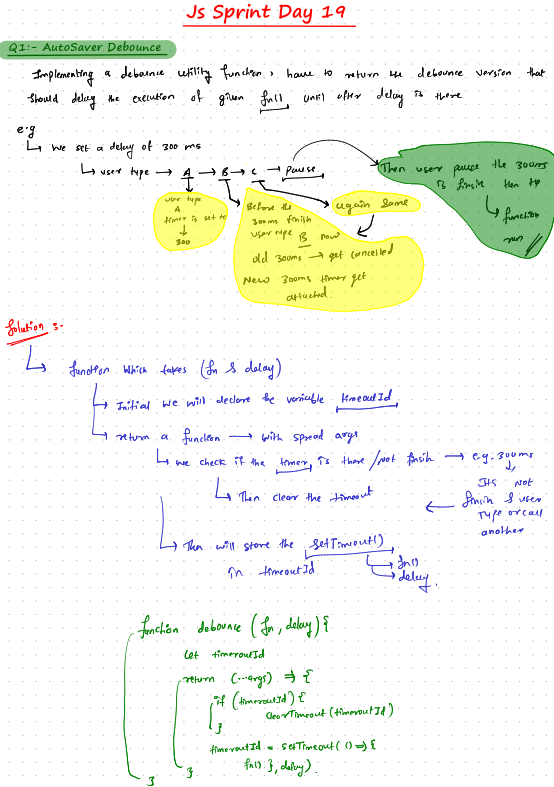 Js Sprint Day 19
Q1:- AutoSaver Debounce
Implementing a debounce utility function, have to return the debounce version that
should delay the execution of given fn() until after delay is there
e.g
We set a delay of 300 ms
user type → A → B → C → Pause
Then user pause the 300ms
is finish then the
function
run
user type
A
timer is set to
↓
300
Before the
300ms finish
user type B now
old 300ms → get cancelled
New 300ms timer get
attached.
again same
Solution :-
function which takes (fn & delay)
Initial we will declare the variable timeoutId
return a function → with spread args
we check if the timer is there / not finsih → e.g. 300ms
↓
Its not
finsih & user
Type or call
another
Then clear the timeout
Then will store the setTimeout()
in timeoutId
fn()
delay.
function debounce (fn, delay) {
let timeoutId
return (...args) => {
if (timeoutId) {
clearTimeout (timeoutId)
}
timeoutId = setTimeout ( () => {
fn() }, delay).
}
}